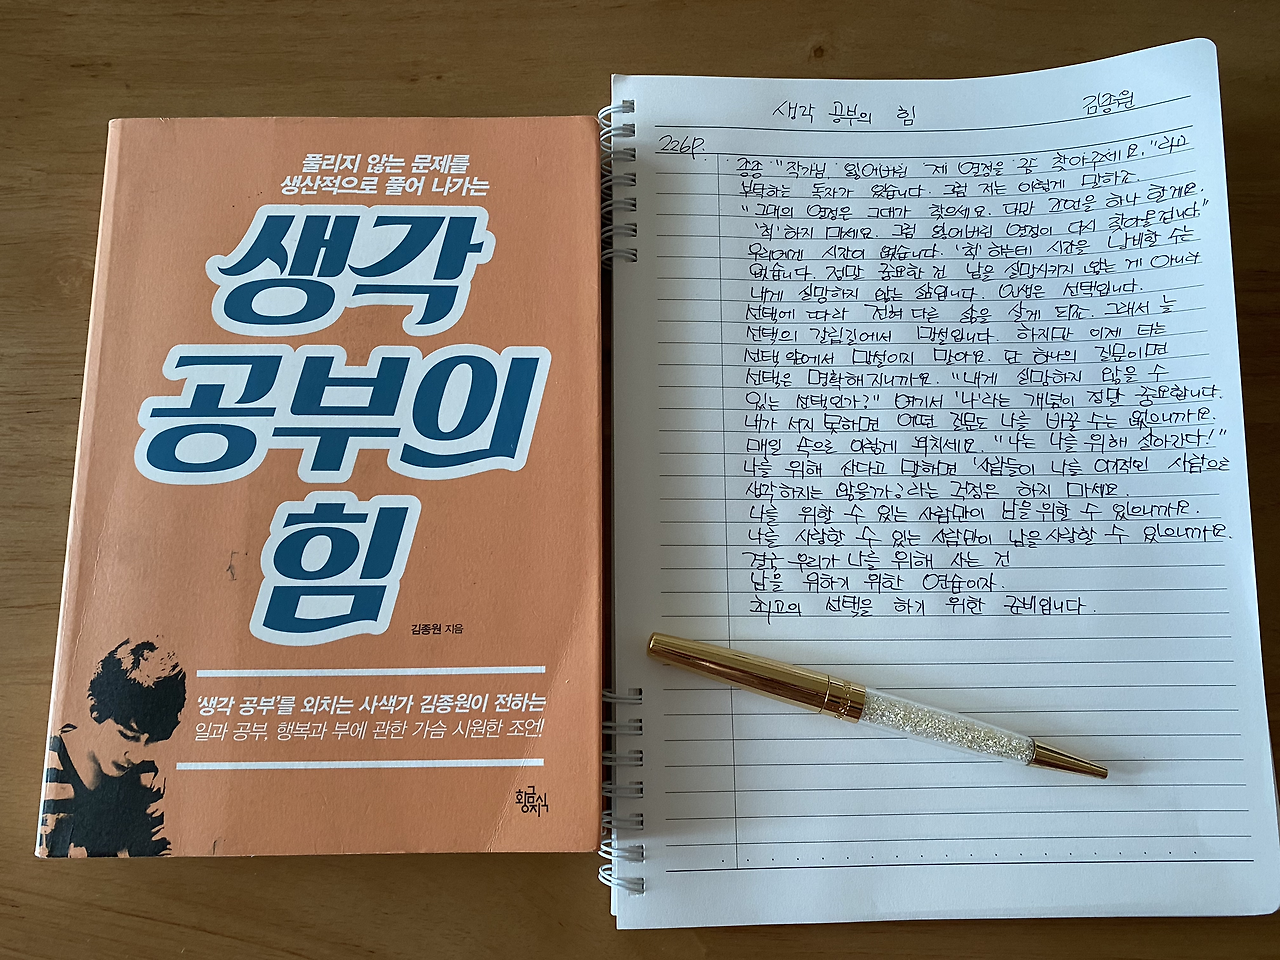 풀리지 않는 문제를
생산적으로 풀어 나가는
생각
공부의
힘
김종원 지음
'생각 공부'를 외치는 사색가 김종원이 전하는
일과 공부, 행복과 부에 관한 가슴 시원한 조언!
황금지식
생각 공부의 힘 김종원
226P.
종종 "작가님, 잃어버린 제 열정을 좀 찾아주세요."라고
부탁하는 독자가 있습니다. 그럼 저는 이렇게 말하죠.
"그대의 열정은 그대가 찾으세요. 다만 조언을 하나 할게요.
'척'하지 마세요. 그럼 잃어버린 열정이 다시 찾아올 겁니다."
우리에게 시간이 없습니다. '척'하는데 시간을 낭비할 수는
없습니다. 정말 중요한 건 남을 실망시키지 않는 게 아니라
내게 실망하지 않는 삶입니다. 인생은 선택입니다.
선택에 따라 전혀 다른 삶을 살게 되죠. 그래서 늘
선택의 갈림길에서 망설입니다. 하지만 이제 다는
선택 앞에서 망설이지 말아요. 단 하나의 질문이면
선택은 명확해지니까요. "내게 실망하지 않을 수
있는 선택인가?" 여기서 '나'라는 개념이 정말 중요합니다.
내가 서지 못하면 어떤 질문도 나를 바꿀 수는 없으니까요.
매일 속으로 이렇게 외치세요. "나는 나를 위해 살아간다!"
나를 위해 산다고 말하면 '사람들이 나를 이기적인 사람으로
생각하지는 않을까?'라는 걱정은 하지 마세요.
나를 위할 수 있는 사람만이 남을 위할 수 있으니까요.
나를 사랑할 수 있는 사람만이 남을 사랑할 수 있으니까요.
결국 우리가 나를 위해 사는 건
남을 위하기 위한 연습이자.
최고의 선택을 하기 위한 준비입니다.